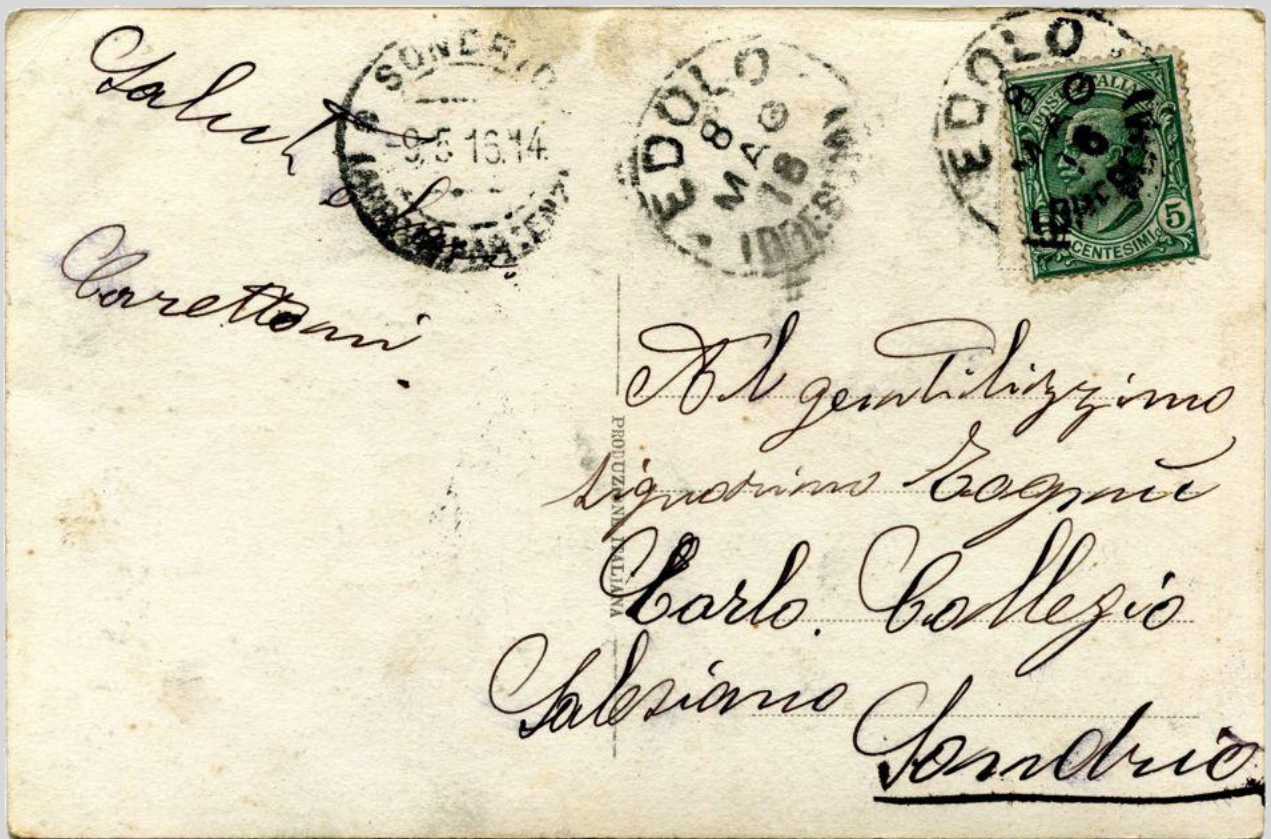 Saluti
Carettoni
SONDRIO
-9.5 16.14
PARTENZ
EDOLO
8
MAG
16
(BRESCIA)
EDOLO
8
POSTE ITALIANE
5
CENTESIMI
PRODUZIONE ITALIANA
Al gentilizzimo
signorino Togni
Carlo. Collegio
Salesiano
Sondrio